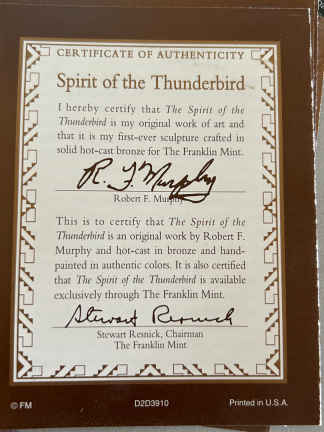 CERTIFICATE OF AUTHENTICITY
Spirit of the Thunderbird
I hereby certify that The Spirit of the
Thunderbird is my original work of art and
that it is my first-ever sculpture crafted in
solid hot-cast bronze for The Franklin Mint.
R. F. Murphy
Robert F. Murphy
This is to certify that The Spirit of the
Thunderbird is an original work by Robert F.
Murphy and hot-cast in bronze and hand-
painted in authentic colors. It is also certified
that The Spirit of the Thunderbird is available
exclusively through The Franklin Mint.
Stewart Resnick
Stewart Resnick, Chairman
The Franklin Mint
© FM D2D3910 Printed in U.S.A.